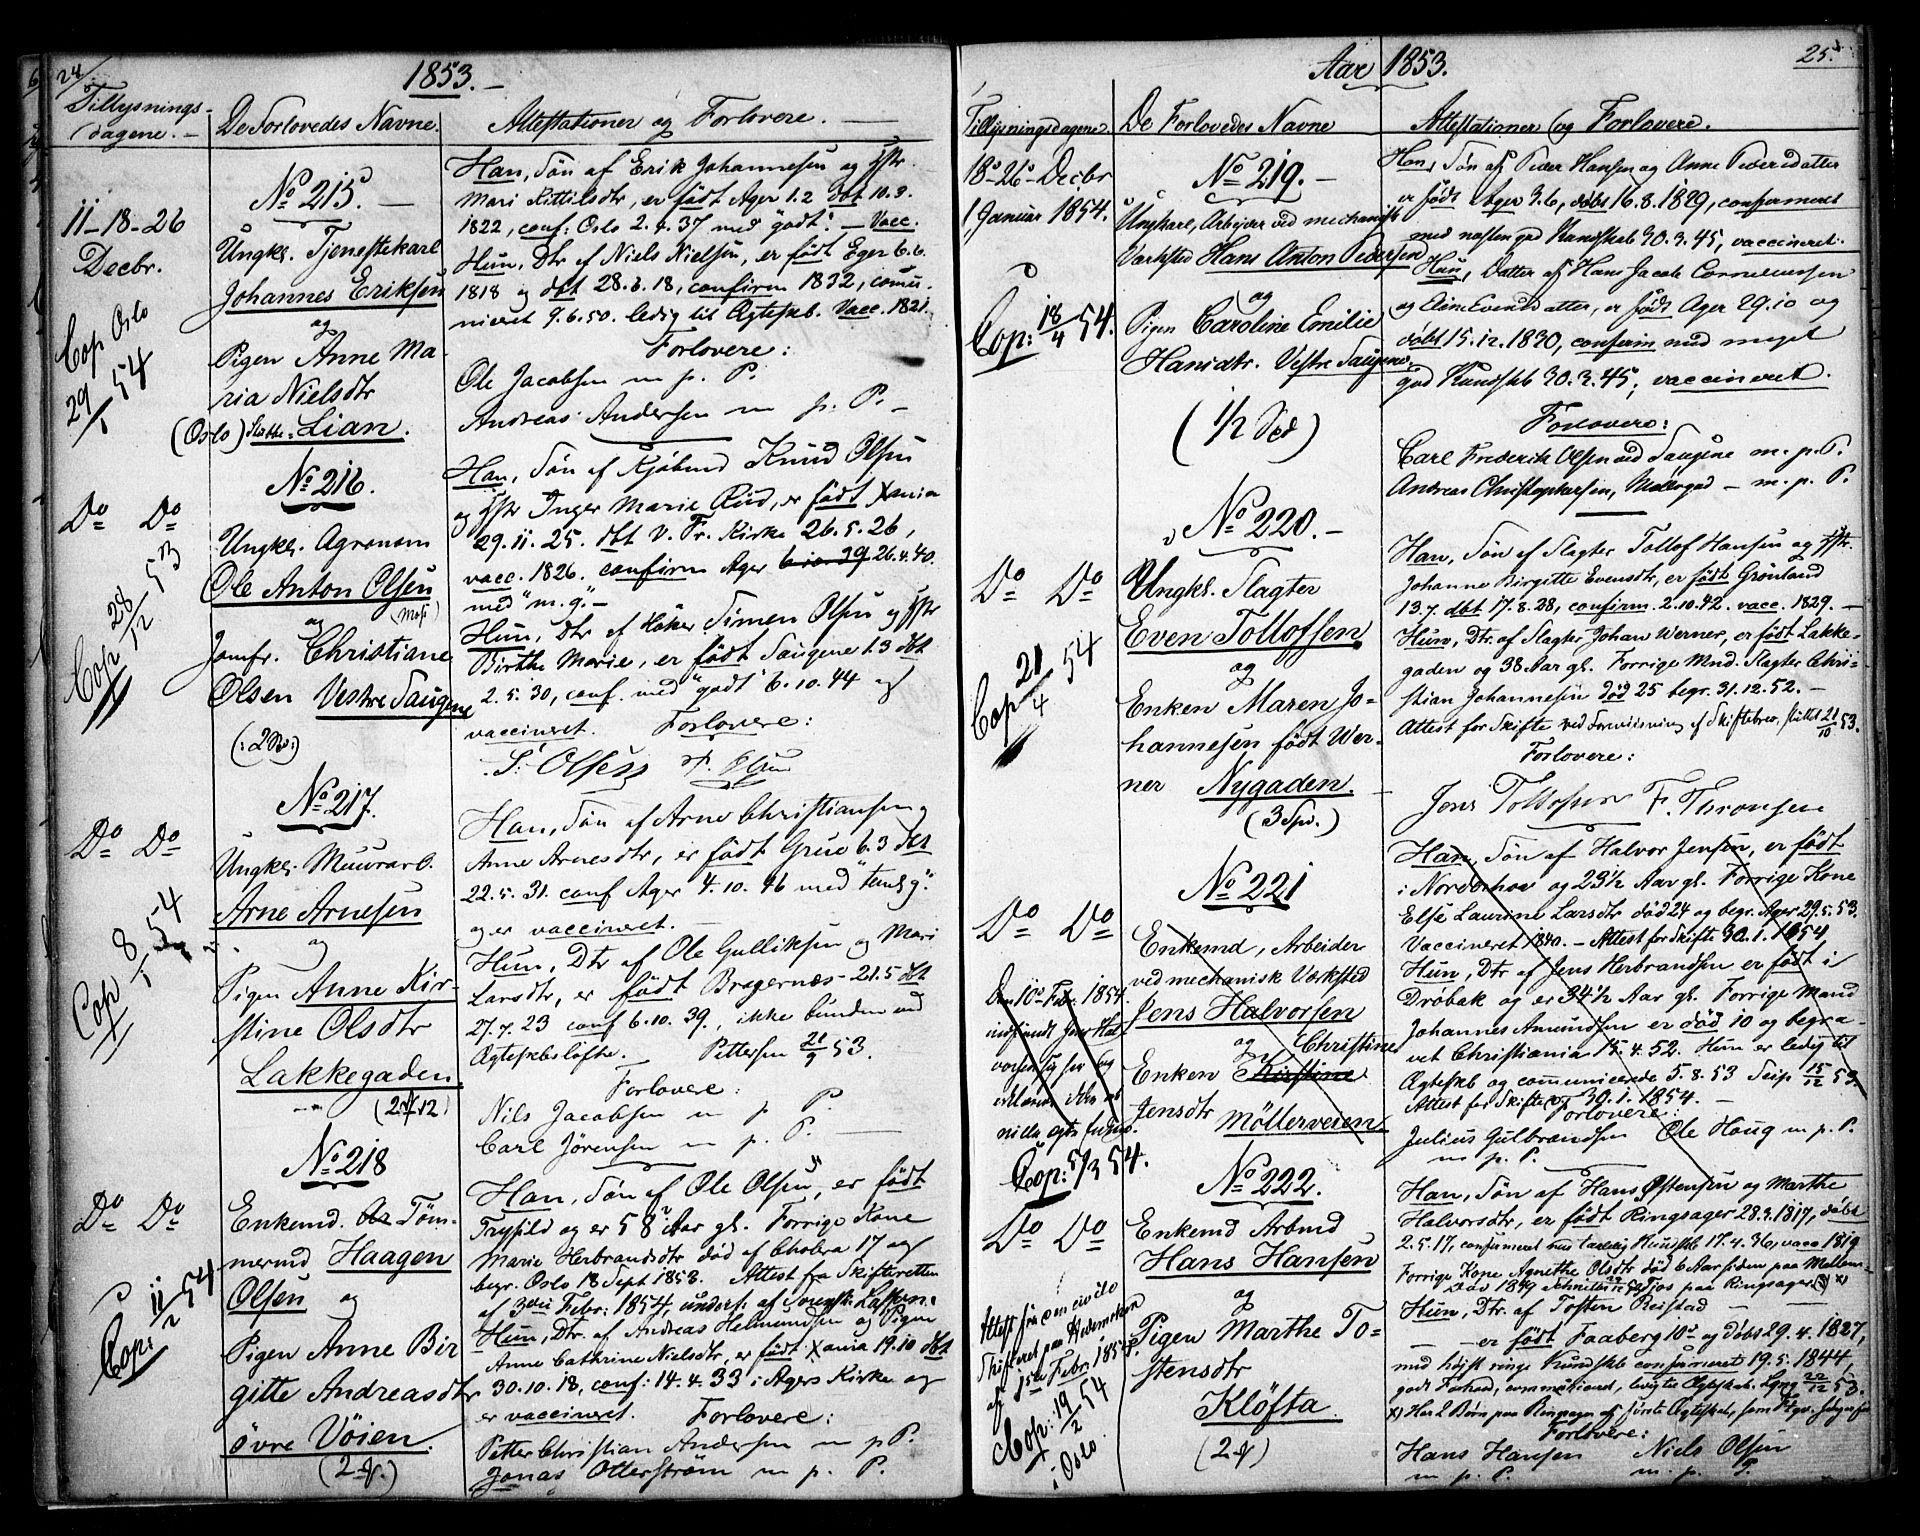 24
1853.
Tillysnings-
dagene.
De Forlovedes Navne.
Attestationer og Forlovere.
11-18-26
Decbr.
Cop Oslo
29/1 54
No 215.
Ungkl. Tjenestekarl
Johannes Eriksen
og
Pigen Anne Ma-
ria Nielsdtr
(Oslo) Lian.
Han, Søn af Erik Johannesen og Hstr
Mari Kittilsdtr, er født Ager 1.2 dbt 10.3.
1822, conf: Oslo 2.4.37 med "godt". - Vacc.
Hun, Dtr af Niels Nielsen, er født Eger 6.6.
1818 og dbt 28.6.18, confirm 1832, comu-
niceret 9.6.50. ledig til Ægteskb. Vacc. 1821.
Forlovere:
Ole Jacobsen m. p. P.
Andreas Andersen m p. P.
Do Do
Cop 28/12 53
No 216.
Ungkl. Agronom
Ole Anton Olsen
og
Jomfr. Christiane
Olsen Vestre Saugene
(:2 :)
Han, Søn af Kjøbmd Knud Olsen
og Hstr Inger Marie Rud, er født Xania
29.11.25. dbt V. Fr. Kirke 26.5.26,
vacc. 1826. confirm Ager 26.4.40.
med "m.g."-
Hun, Dtr af Høker Simen Olsen og Hstr
Birthe Marie, er født Saugene 1.3 dbt
2.5.30, conf. med "godt" 6.10.44 og
vaccineret. Forlovere:
S: Olsen
Do Do
Cop 8/1 54
No 217.
Ungkl. Muurar
Arne Arnesen
og
Pigen Anne Kir-
stine Olsdtr
Lakkegaden
Han, Søn af Arne Christiansen og
Anne Arnesdtr, er født Grue 6.3 dbt
22.5.31. conf Ager 4.10.46 med "temlg g."
og er vaccineret. -
Hun, Dtr af Ole Gulliksen og Mari
Larsdtr, er født Bragernæs - 21.5 dbt
27.7.23 conf 6.10.39., ikke bunden ved
Ægteskbsløfte. Pettersen 21/9 53.
Forlovere:
Nils Jacobsen m p. P.
Carl Jørensen m. p. P.
Do Do
Cop: 11/2 54
No 218
Enkemd. Töm-
mermd Haagen
Olsen og
Pigen Anne Bir
gitte Andreasdtr
övre Vöien.
Han, Søn af Ole Olsen, er født
Trysild og er 58 Aar gl. Forrige Kone
Marie Herbrandsdtr död af Cholera 17 og
begr. Oslo 18 Sept 1853. Attest fra Skifteretten
af 3die Febr: 1854, underf. af
Hun, Dtr. af Andreas Helmundsen og Pigen
Anne Cathrine Nielsdtr, er født Xania 19.10 dbt
30.10.18, conf: 14.4.33 i Agers Kirke og
er vaccineret. Forlovere:
Petter Christian Andersen m p P.
Jonas Otterström m p. P.
25
Aar 1853.
Tillysningsdagene
De Forlovedes Navne
Attestationer og Forlovere.
18-26 Decbr
1 Januar 1854.
Cop: 18/4 54.
No 219.
Ungkarl, Arbejder ved mechanisk
Værksted Hans Anton Pedersen
og
Pigen Caroline Emilie
Hansdtr. Vestre Saugene.
Han, Søn af Peder Hansen og Anne Pedersdatter
er født Ager 3.6, döbt 16.8.1829, confirmeret
med næsten god Kundskab 30.3.45, vaccineret.
Hun, Datter af Hans Jacob Corneliusen
og Evensdatter, er født Ager 29.10 og
döbt 15.12.1830, confirm med meget
god Kundskb 30.3.45, vaccineret.
Forlovere:
Carl Frederik Olsen ved Saugene m. p. P.
Andreas Christophersen, Møllergd - m. p. P.
Do Do
Cop 21/4 54
No 220.
Ungkl. Slagter
Even Tollofsen
og
Enken Maren Jo-
hannesen født Wer-
ner Nygaden.
(3 Spd.)
Han, Søn af Slagter Tollof Hansen og Hstr.
Johanne Birgitte Evensdtr, er født Grönland
13.7. dbt 17.8.28, confirm. 2.10.42. vacc. 1829.
Hun, Dtr. af Slagter Johan Werner, er født Lakke-
gaden og 38 Aar gl. Forrige Mnd. Slagter Chri-
stian Johannesen död 25 begr. 31.12.52. -
Attest for Skifte ved Foreviisning af Skiftebrev, sluttet 21/10 53.
Forlovere:
Jens Tollofsen F. Thronsen
Do Do
Den 10de Febr. 1854
indfandt Jens Hal-
vorsen sig her og
Cop: 5/3 54.
No 221
Enkemd, Arbeider
ved mechanisk Værksted
Jens Halvorsen
og Christine
Enken Kirstine
Jensdtr Möllerveien
Han, Søn af Halvor Jensen, er født
i Norderhov og 29½ Aar gl. Forrige Kone
Else Laurine Larsdtr död 24 og begr. Ager 29.5.53.
Vaccineret 1840. - Attest for Skifte 30.1.1854
Hun, Dtr. af Jens Herbrandsen er født i
Dröbak og er 34½ Aar gl. Forrige Mand
Johannes Amundsen er död 10 og begra-
vet Christiania 15.4.52. Hun er ledig til
Ægteskb og communicerede 5.8.53 15/12 53.
Attest for Skifte 30.1.1854. -
Forlovere:
Julius Gulbrandsen Ole Haug m. p. P.
m. p. P.
Do Do
Attest fra den civile
Skifteret paa Hedemarken
af 1ste Febr. 1854.
Cop: 19/2 54
i Oslo
No 222.
Enkemd Arbmd
Hans Hansen
og
Pigen Marthe To-
stensdtr
Klöfta.
Han, Søn af Hans Østensen og Marthe
Halvorsdtr, er født Ringsager 28.3.1817, döbt
2.5.17, confirmeret med tarvelig Kundskb 17.4.36, vacc 1819
Forrige Kone Agnethe Olsdtr död 6 Aar siden paa
Död 1849 paa Ringsager. x)
Hun, Dtr. af Tosten Reistad
- er født Faaberg 10 og döbt 29.4.1827,
med højst ringe Kundskb confirmeret 19.5.1844,
godt Forhold, communiceret, ledig til Ægteskab. 22/12 53.
x) Har 2 Børn paa Ringsager af første Ægteskab, som
Forlovere:
Hans Hansen Niels Olsen
m p. P. m. p. P.